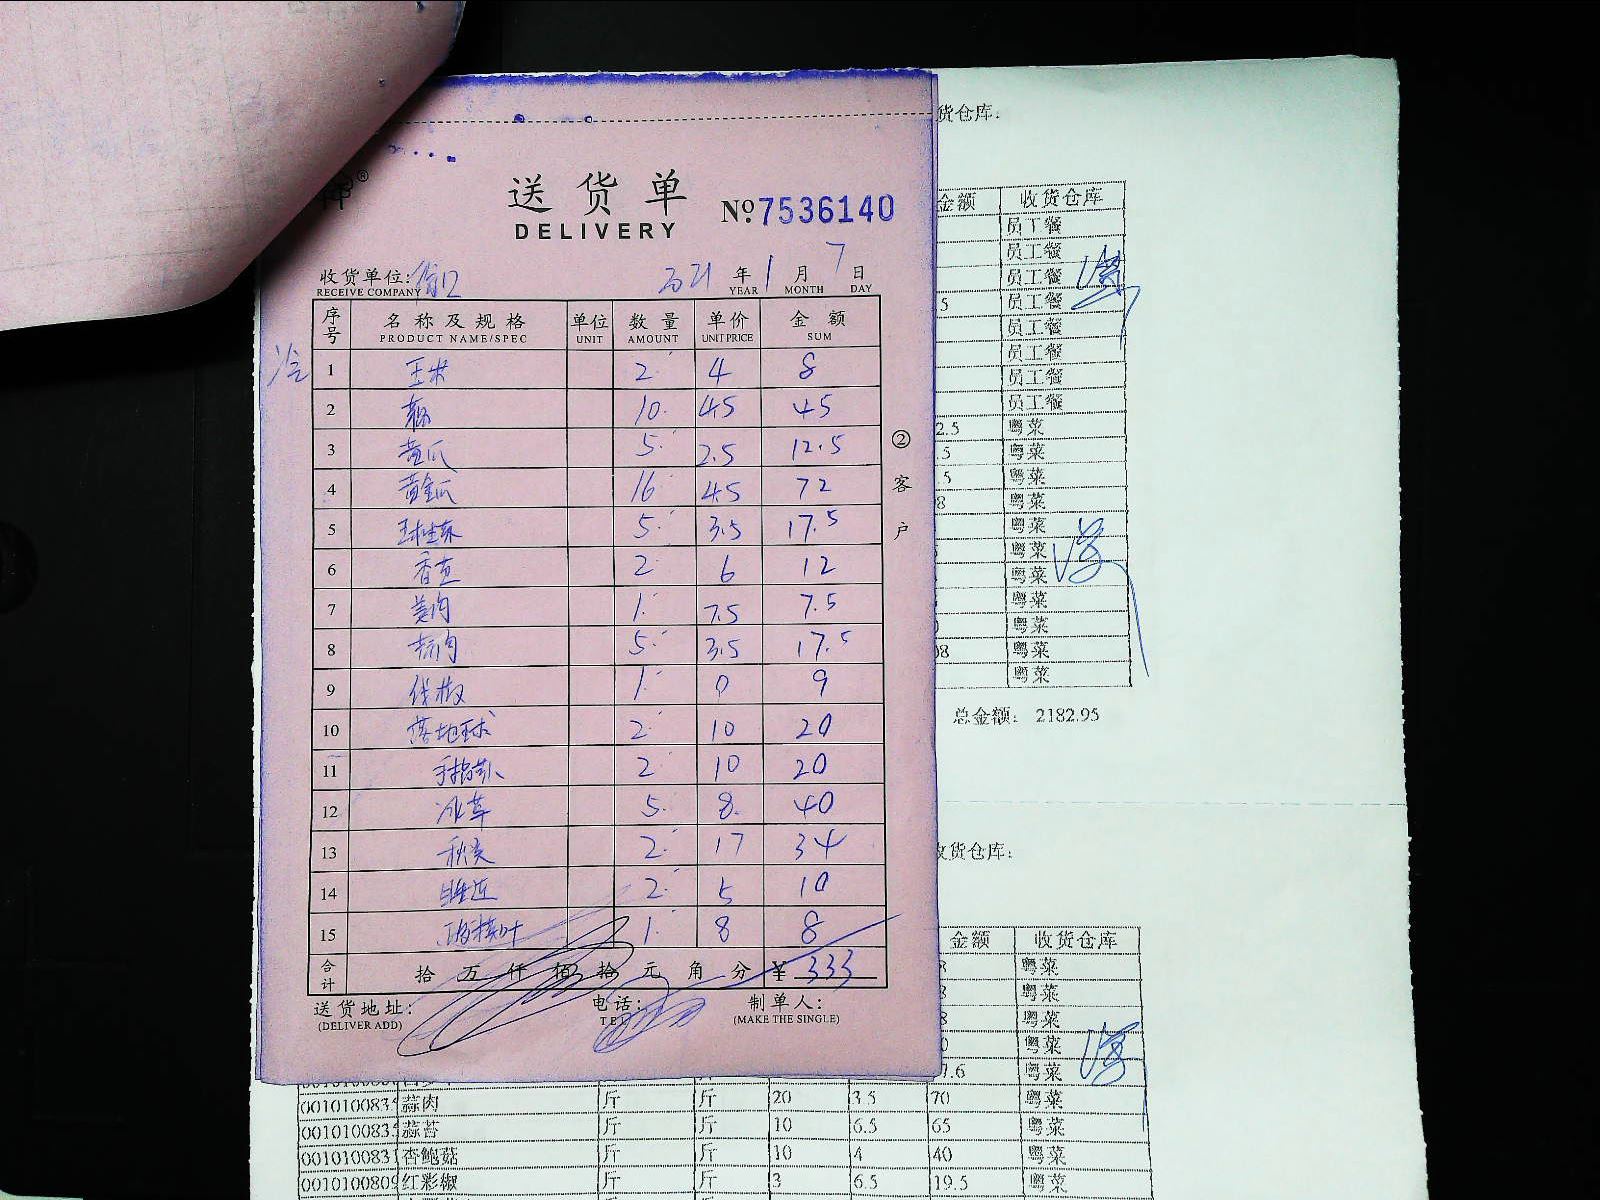 货仓库:
送货单
DELIVERY
№ 7536140
收货单位:
RECEIVE COMPANY
2021 年 1 月 7 日
YEAR MONTH DAY
序号 名称及规格 单位 数量 单价 金额
PRODUCT NAME/SPEC UNIT AMOUNT UNIT PRICE SUM
1 玉米 2 4 8
2 10 4.5 45
3 黄瓜 5 2.5 12.5
4 黄金瓜 16 4.5 72
5 5 3.5 17.5
6 香芹 2 6 12
7 姜肉 1 7.5 7.5
8 蒜肉 5 3.5 17.5
9 线椒 1 9
10 落地球 2 10 20
11 2 10 20
12 冰草 5 8 40
13 秋葵 2 17 34
14 2 5 10
15 1 8 8
合计 拾 万 仟 佰 拾 元 角 分 ¥ 333
送货地址: 电话: 制单人:
(DELIVER ADD) TEL (MAKE THE SINGLE)
②客户
金额 收货仓库
员工餐
员工餐
员工餐
5 员工餐
员工餐
员工餐
员工餐
员工餐
2.5 粤菜
.5 粤菜
.5 粤菜
8 粤菜
粤菜
粤菜
粤菜
粤菜
粤菜
08 粤菜
粤菜
总金额: 2182.95
收货仓库:
金额 收货仓库
8 粤菜
8 粤菜
8 粤菜
0 粤菜
7.6 粤菜
001010083 蒜肉 斤 斤 20 3.5 70 粤菜
001010083 蒜苔 斤 斤 10 6.5 65 粤菜
001010083 杏鲍菇 斤 斤 10 4 40 粤菜
0010100809 红彩椒 斤 斤 3 6.5 19.5 粤菜